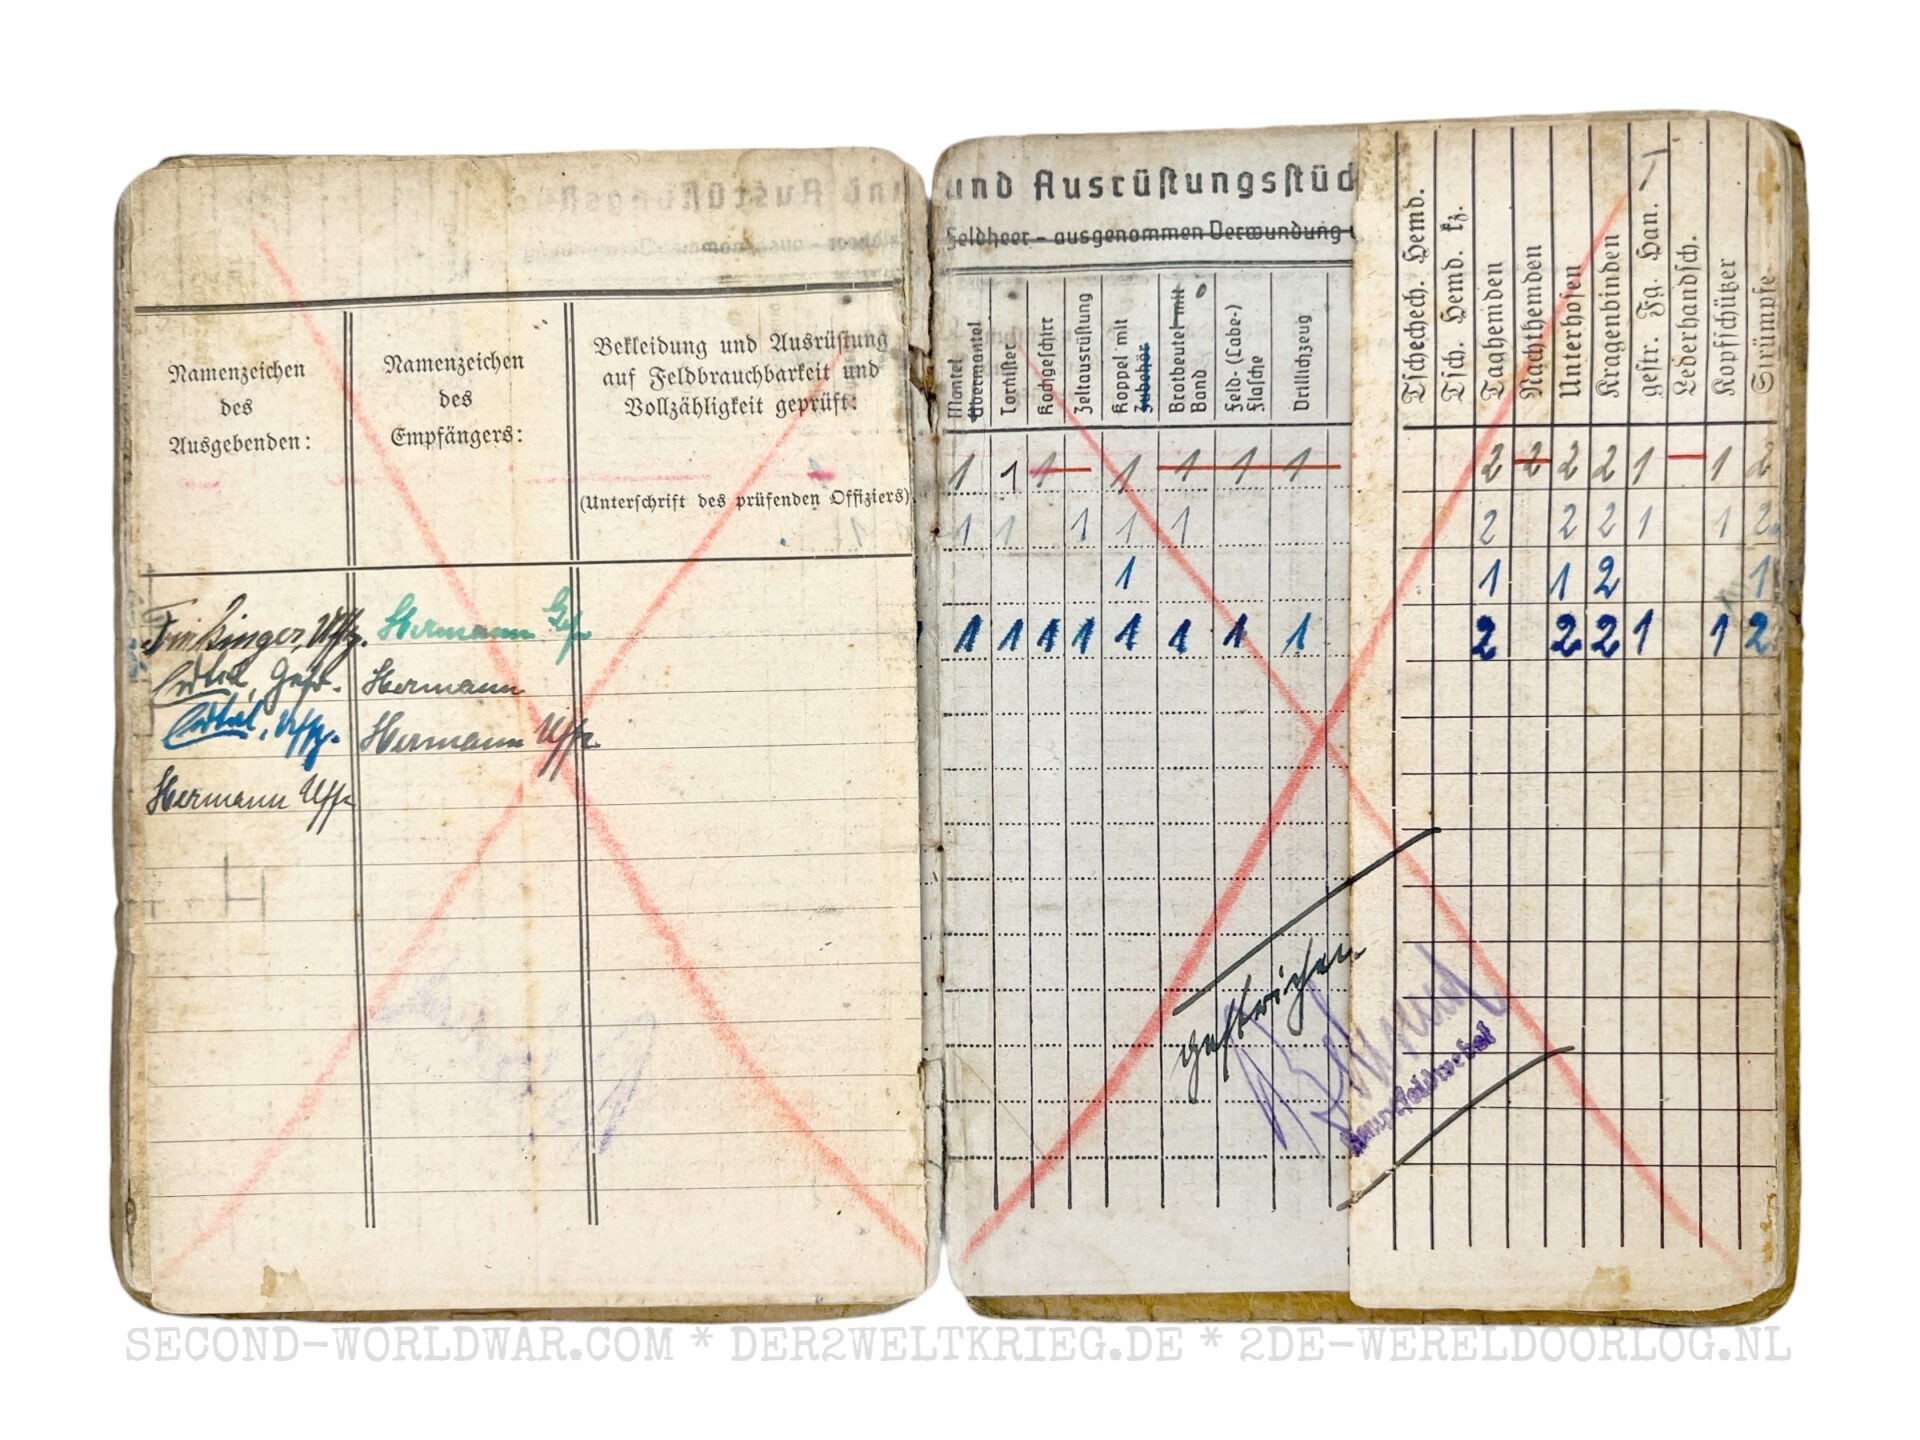 Namenzeichen
des
Ausgebenden:
Namenzeichen
des
Empfängers:
Bekleidung und Ausrüstung
auf Feldbrauchbarkeit und
Vollzähligkeit geprüft:
(Unterschrift des prüfenden Offiziers)
Uffz. Hermann
Gefr. Hermann
Uffz. Hermann Uffz.
Hermann Uffz.
und Ausrüstungsstüc
Feldheer – ausgenommen Verwundung
Mantel
Übermantel
Tornister
Kochgeschirr
Zeltausrüstung
Koppel mit
Zubehör
Brotbeutel mit
Band
Feld- (Labe-)
Flasche
Drillichzeug
Tschechech. Hemd.
Tsch. Hemd. kz.
Taahemden
Nachthemden
Unterhosen
Kragenbinden
gestr. Fa. Han.
Lederhandsch.
Kopfschützer
Strümpfe
1 1 1 1 1 1 1 2 2 2 2 1 1 2
1 1 1 1 1 2 2 2 1 1 2
1 1 1 2 1
1 1 1 1 1 1 1 1 2 2 2 1 1 2
gestrichen
Hauptfeldwebel
SECOND-WORLDWAR.COM * DER2WELTKRIEG.DE * 2DE-WERELDOORLOG.NL